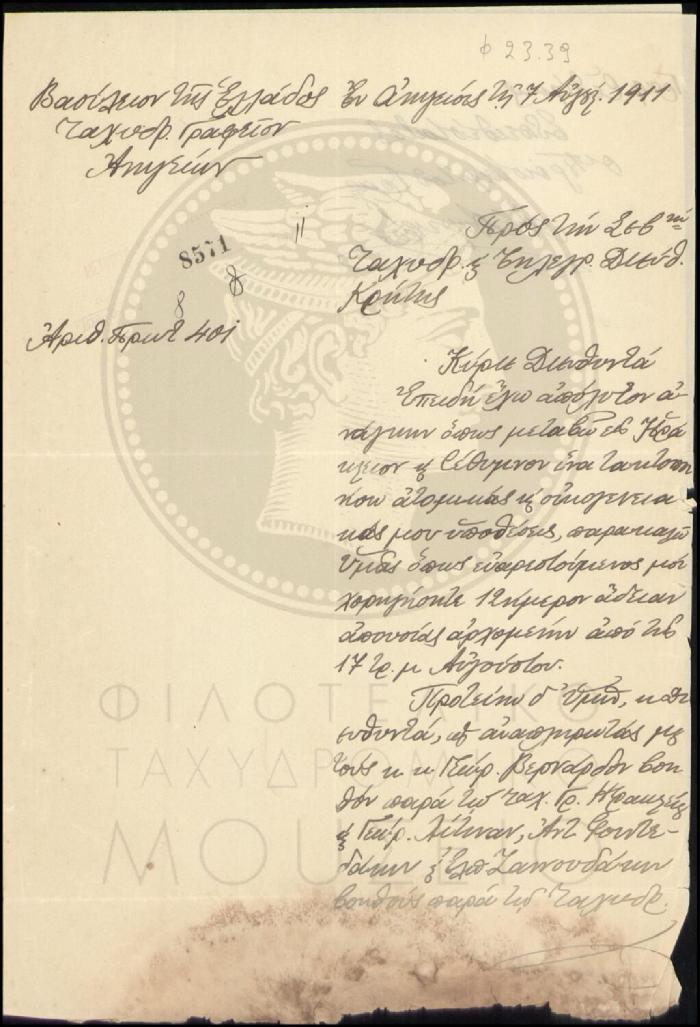 φ. 23.39
Βασίλειον της Ελλάδος Εν Αϊμενίοις τη 7 Αυγ. 1911
Ταχυδρ. Γραφείον
8571
Προς την Σεβ<sup>τήν</sup>
Ταχυδρ. & Τηλεγρ. Διεύθ.
Κρήτης
8 8
Αριθ. Πρωτ 401
Κύριε Διευθυντά
Επειδή έχω απόλυτον α-
νάγκην όπως μεταβώ εις Ηρά
κλειον & Ρέθυμνον ίνα τακτοποι
ήσω ατομικάς & οικογενεια
κάς μου υποθέσεις, παρακαλώ
Υμάς όπως ευαρεστούμενος μοι
χορηγήσητε 12ήμερον άδειαν
απουσίας αρχομένην από της
17 τρ. μ. Αυγούστου.
Προτείνω δ' Υμίν, κ. Δι
ευθυντά, ως αναπληρωτάς μου
τους κ. κ. Γεώρ. Βερνάρδον βοη
θόν παρά τω Ταχ. Γρ. Ηρακλείου
& Γεώρ. Λίτιναν, Αντ. Φουντε-
δάκην & Ελπ. Ζαννουδάκην
βοηθούς παρά τω Ταχυδρ.
ΦΙΛΟΤΕΛΙΚΟ
ΤΑΧΥΔΡΟΜΙΚΟ
ΜΟΥΣΕΙΟ